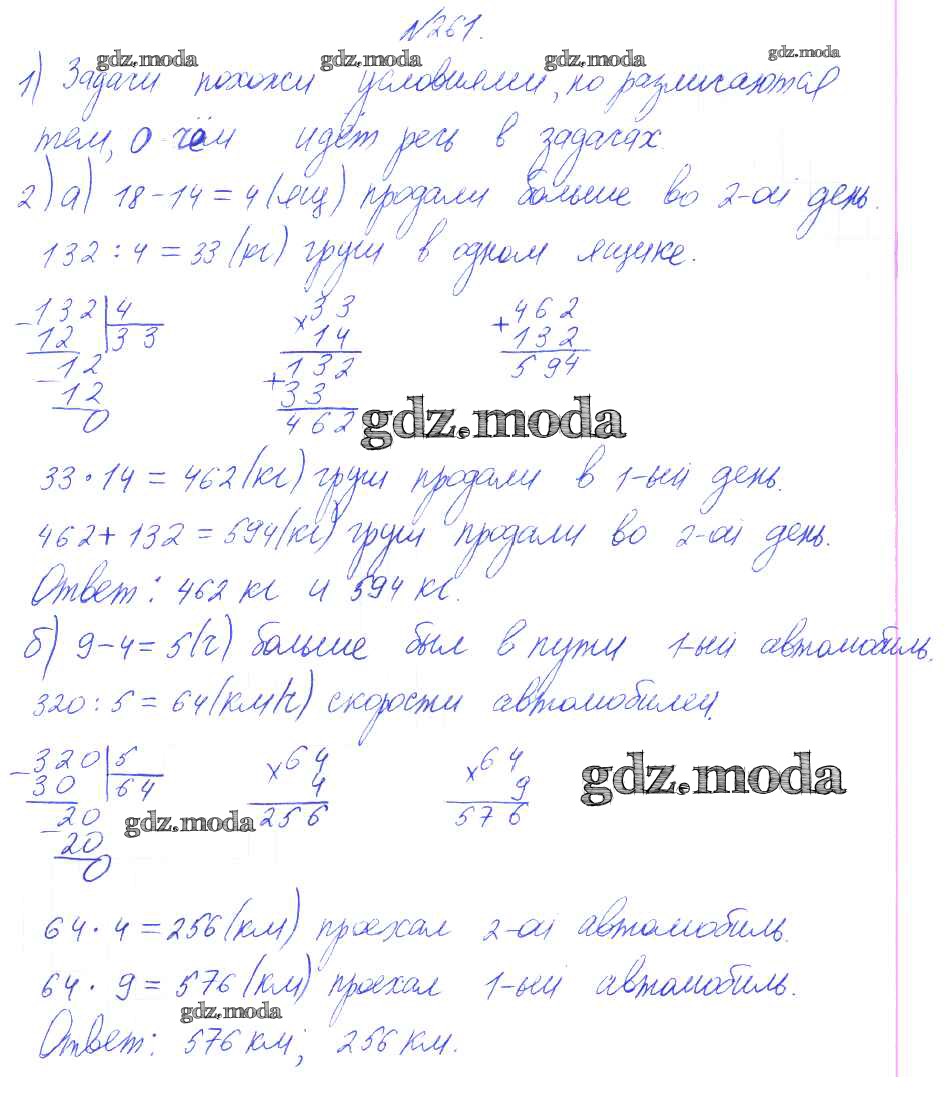 №261.
gdz.moda gdz.moda gdz.moda gdz.moda
1) Задачи похожи условиями, но различаются
тем, о чём идёт речь в задачах.
2) а) 18-14=4(ящ) продали больше во 2-ой день.
132:4=33(кг) груш в одном ящике.
-132|4 ×33 +462
12 33 14 132
-12 132 594
12 +33
0 462 gdz.moda
33·14=462(кг) груш продали в 1-ый день.
462+132=594(кг) груш продали во 2-ой день.
Ответ: 462 кг и 594 кг.
б) 9-4=5(ч) больше был в пути 1-ый автомобиль.
320:5=64(км/ч) скорости автомобилей.
-320|5 ×64 ×64 gdz.moda
30 64 4 9
-20 gdz.moda 256 576
20
0
64·4=256(км) проехал 2-ой автомобиль.
64·9=576(км) проехал 1-ый автомобиль.
gdz.moda
Ответ: 576 км; 256 км.